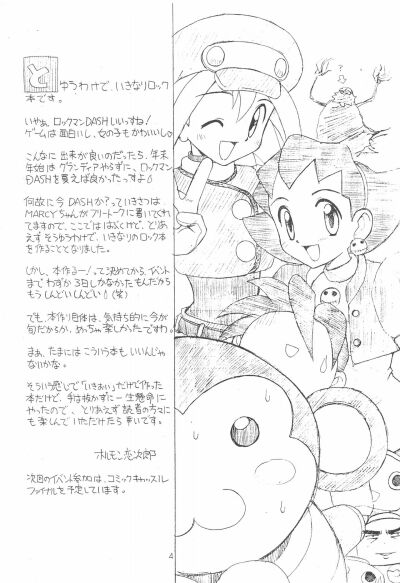 とゆうわけで、いきなりロック
本です。
いやぁ、ロックマンDASHいいっすね!
ゲームは面白いし、女の子もかわいいし。
こんなに出来が良いのだったら、年末
年始はグランディアやらずに、ロックマン
DASHを買えば良かったっすよ
何故に今DASHか?っていきさつは
MARCYちゃんがフリートークに書いてくれ
てますので、ここでははぶくけど、とりあ
えずそうゆうわけで、いきなりのロック本
を作ることとなりました。
しかし、本作るー/って決めてから、イベント
までわずか3日しかなかったもんだから
もうしんどいしんどい(笑)
でも、本作り自体は、気持ち的に今が
旬だからか、めっちゃ楽しかったですわ。
まぁ、たまにはこういう本もいいんじゃ
ないかな。
そういう感じで「いきおい」だけで作った
本だけど、手は抜かずに一生懸命に
やったので、とりあえず読者の方々に
も楽しんでいただけたら幸いです。
ホルモン恋次郎
次回のイベント参加は、コミックキャッスル
ファイナルを予定しています。
?
4